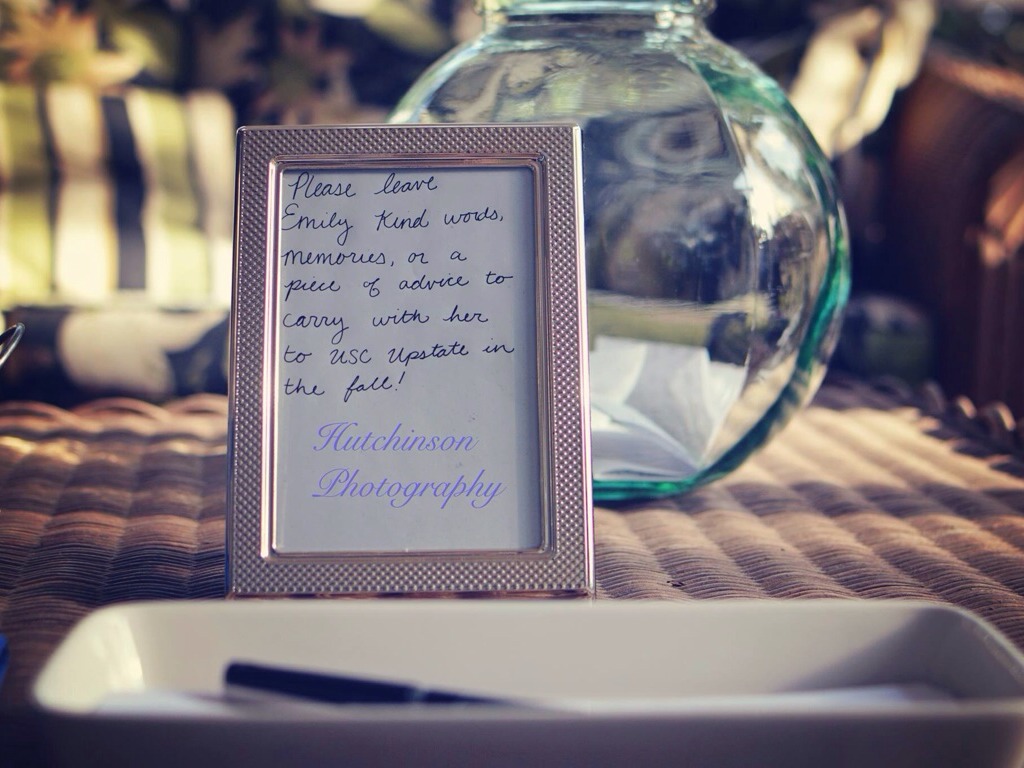 Please leave
Emily Kind words,
memories, or a
piece of advice to
carry with her
to USC Upstate in
the fall!
Hutchinson
Photography